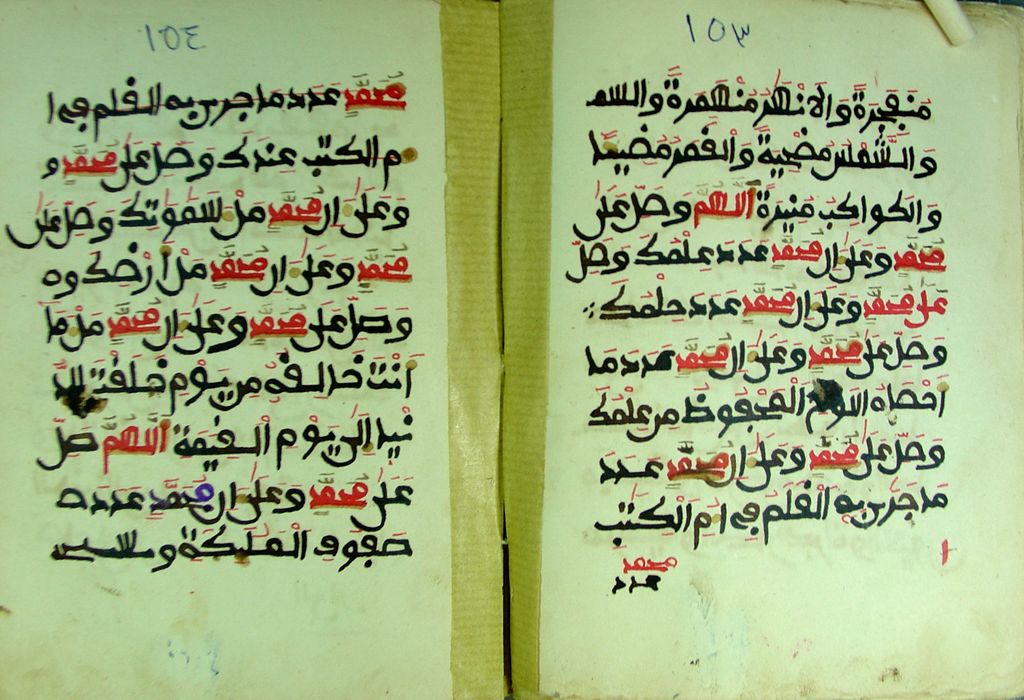 ١٥٣
منفجرة والانهر منهمرة
والشمس مضحية والقمر مضييا
والكواكب منيرة اللهم وصل على
محمد وعلى ال محمد عدد علمك وصل
على محمد وعلى ال محمد عدد حلمك
وصل على محمد وعلى ال محمد عدد ما
احصاه اللوح المحفوظ من علمك
وصل على محمد وعلى ال محمد عدد
ما جرى به القلم في ام الكتب
محمد
عدد
١٥٤
محمد عدد ما جرى به القلم في ا
م الكتب عندك وصل على محمد و
وعلى ال محمد مل سموتك وصل على
محمد وعلى ال محمد مل ارضك وه
وصل على محمد وعلى ال محمد مل ما
انت خالقه من يوم خلقت الد
نيا الى يوم القيمة اللهم صل
على محمد وعلى ال محمد عدد ص
صفوف الملكة